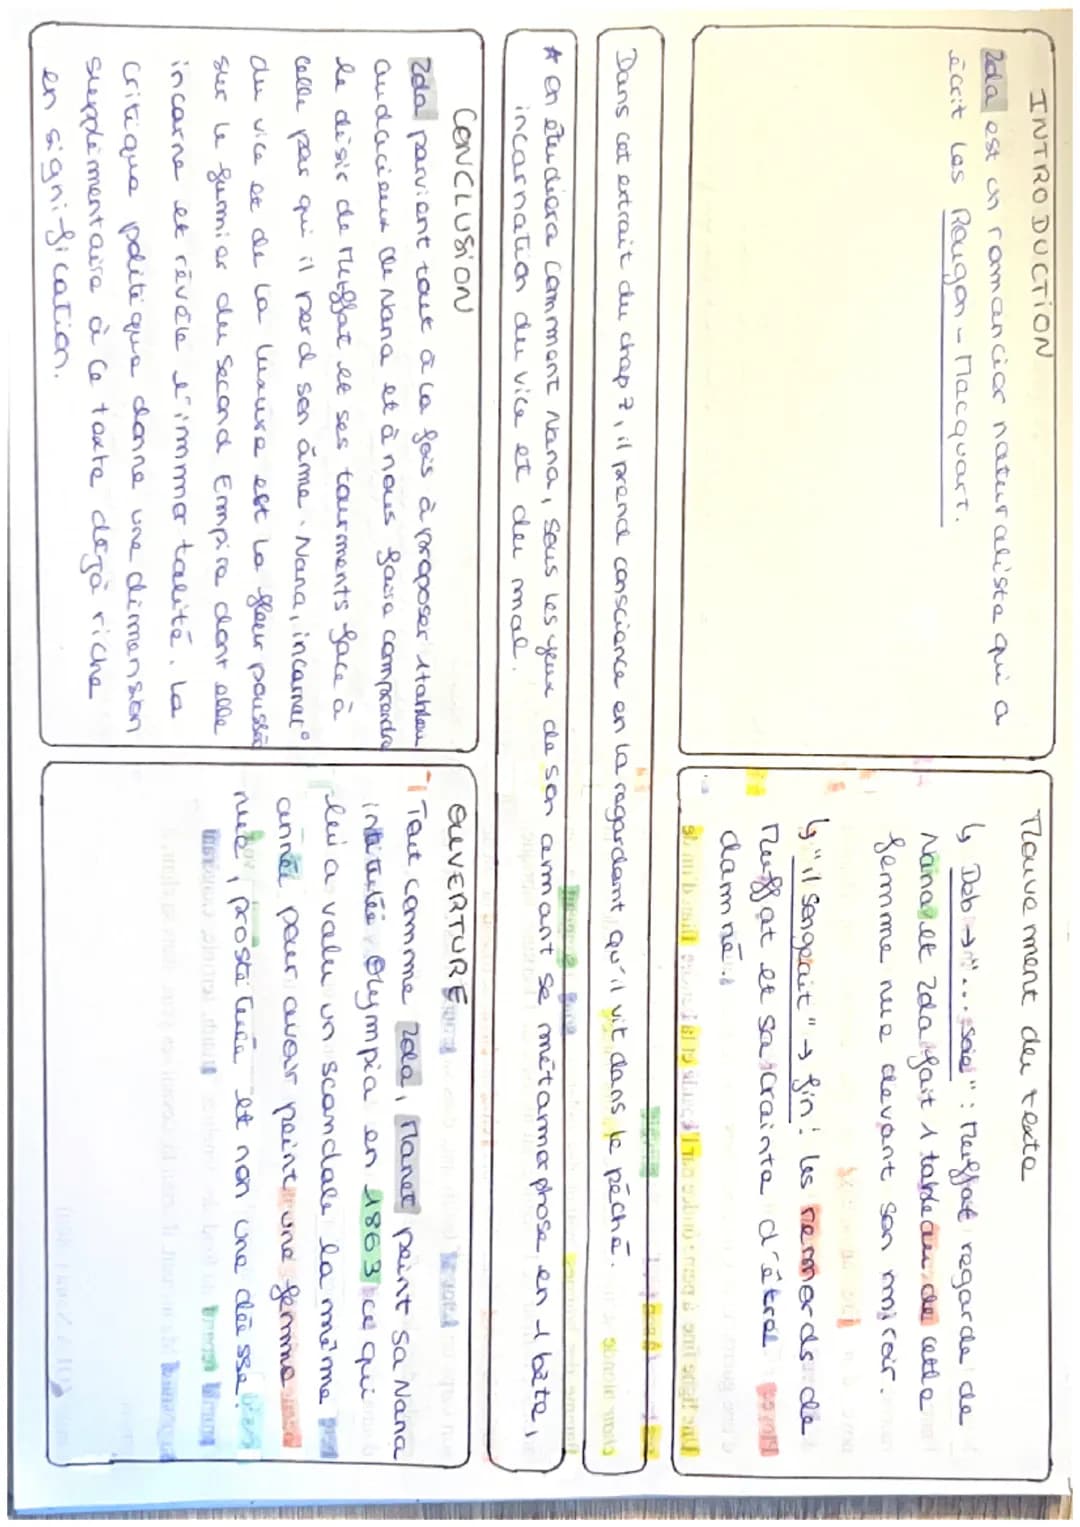 INTRODUCTION
Zola est un romancier naturaliste qui a
écrit les Rougon-Macquart.
Mouvement du texte
↳ Deb → "... soie" : Muffat regarde de
Nana et Zola fait 1 tableau de cette
femme nue devant son miroir.
↳ "il songeait" → fin : les remords de
Muffat et sa crainte d'être
damné.
Dans cet extrait du chap 7, il prend conscience en la regardant qu'il vit dans le péché.
* On étudiera comment Nana, sous les yeux de son amant se métamorphose en 1 bête,
incarnation du vice et du mal.
CONCLUSION
Zola parvient tout à la fois à proposer 1 tableau
audacieux de Nana et à nous faire comprendre
le désir de Muffat et ses tourments face à
celle par qui il perd son âme. Nana, incarnat°
du vice et de la luxure est la fleur poussée
sur le fumier du Second Empire dont elle
incarne et révèle l'immortalité. La
critique politique donne une dimension
supplémentaire à ce texte déjà riche
en signification.
OUVERTURE
Tout comme Zola, Manet peint sa Nana
intitulée Olympia en 1863 ce qui
lui a valu un scandale la même
année pour avoir peint une femme
nue, prostituée et non une déesse.